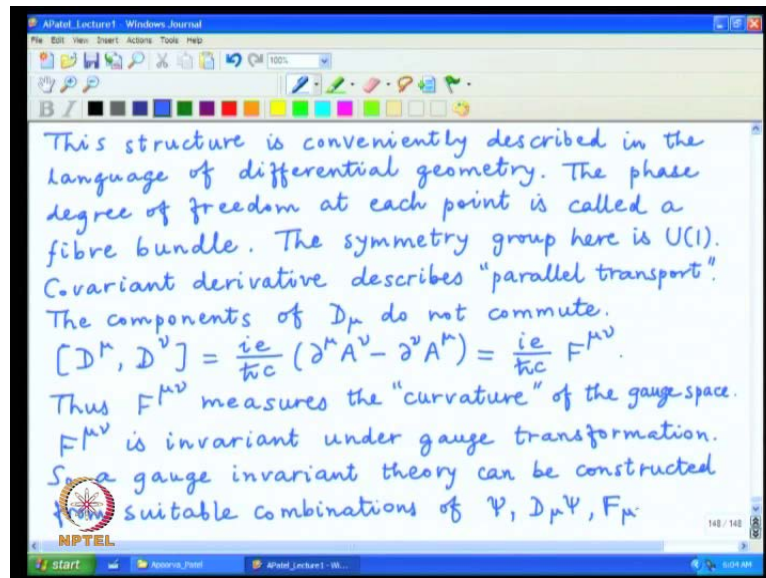 APatel_Lecture1 - Windows Journal
File Edit View Insert Actions Tools Help
100%
B I
This structure is conveniently described in the
language of differential geometry. The phase
degree of freedom at each point is called a
fibre bundle. The symmetry group here is U(1).
Covariant derivative describes "parallel transport".
The components of Dμ do not commute.
[D^μ, D^ν] = ie/ħc (∂^μ A^ν - ∂^ν A^μ) = ie/ħc F^μν.
Thus F^μν measures the "curvature" of the gauge space.
F^μν is invariant under gauge transformation.
So a gauge invariant theory can be constructed
from suitable combinations of Ψ, DμΨ, Fμ
NPTEL
148 / 148
start Apoorva_Patel APatel_Lecture1 - Wi... 6:04 AM